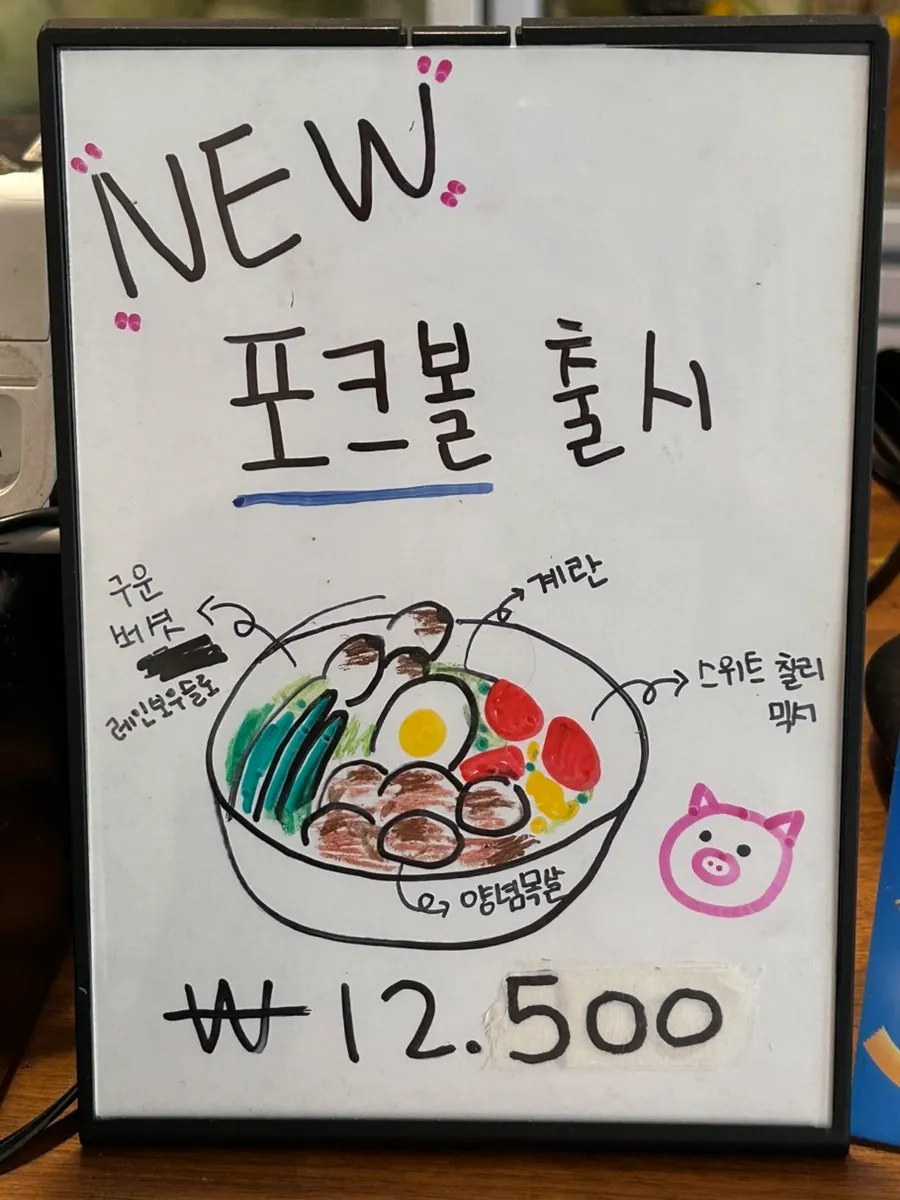 NEW
포크볼 출시
구운
버섯
레인보우슬로
계란
스위트 칠리
믹서
양념목살
₩12.500